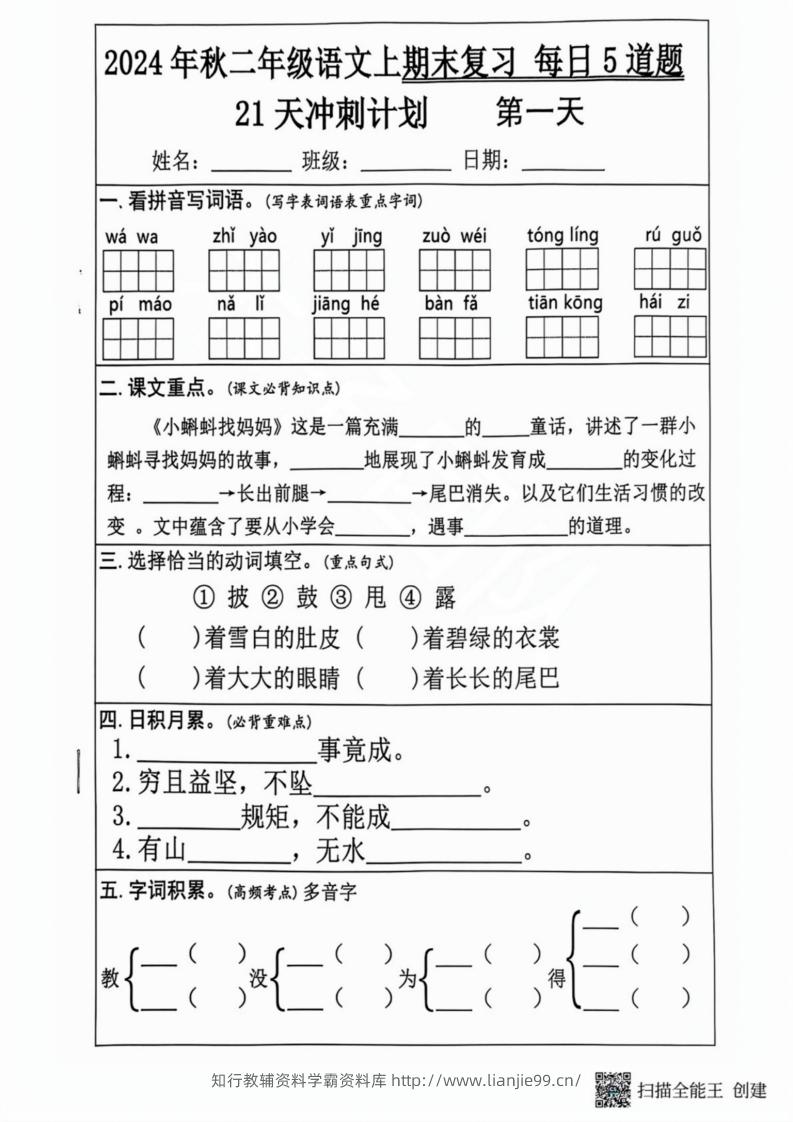 2024年秋二年级语文上期末复习 每日5道题
21天冲刺计划 第一天
姓名：______ 班级：______ 日期：______
一.看拼音写词语。(写字表词语表重点字词)
wá wa zhǐ yào yǐ jīng zuò wéi tóng líng rú guǒ
pí máo nǎ lǐ jiāng hé bàn fǎ tiān kōng hái zi
二.课文重点。(课文必背知识点)
《小蝌蚪找妈妈》这是一篇充满______的____童话，讲述了一群小
蝌蚪寻找妈妈的故事，______地展现了小蝌蚪发育成______的变化过
程：______→长出前腿→______→尾巴消失。以及它们生活习惯的改
变 。文中蕴含了要从小学会______，遇事________的道理。
三.选择恰当的动词填空。(重点句式)
① 披 ② 鼓 ③ 甩 ④ 露
(  )着雪白的肚皮 (  )着碧绿的衣裳
(  )着大大的眼睛 (  )着长长的尾巴
四.日积月累。(必背重难点)
1.____________事竟成。
2.穷且益坚，不坠____________。
3.________规矩，不能成________。
4.有山________，无水__________。
五.字词积累。(高频考点)多音字
教 ___(  ) ___(  ) 没 ___(  ) ___(  ) 为 ___(  ) ___(  ) 得 ___(  ) ___(  ) ___(  )
知行教辅资料学霸资料库 http://www.lianjie99.cn/
扫描全能王 创建